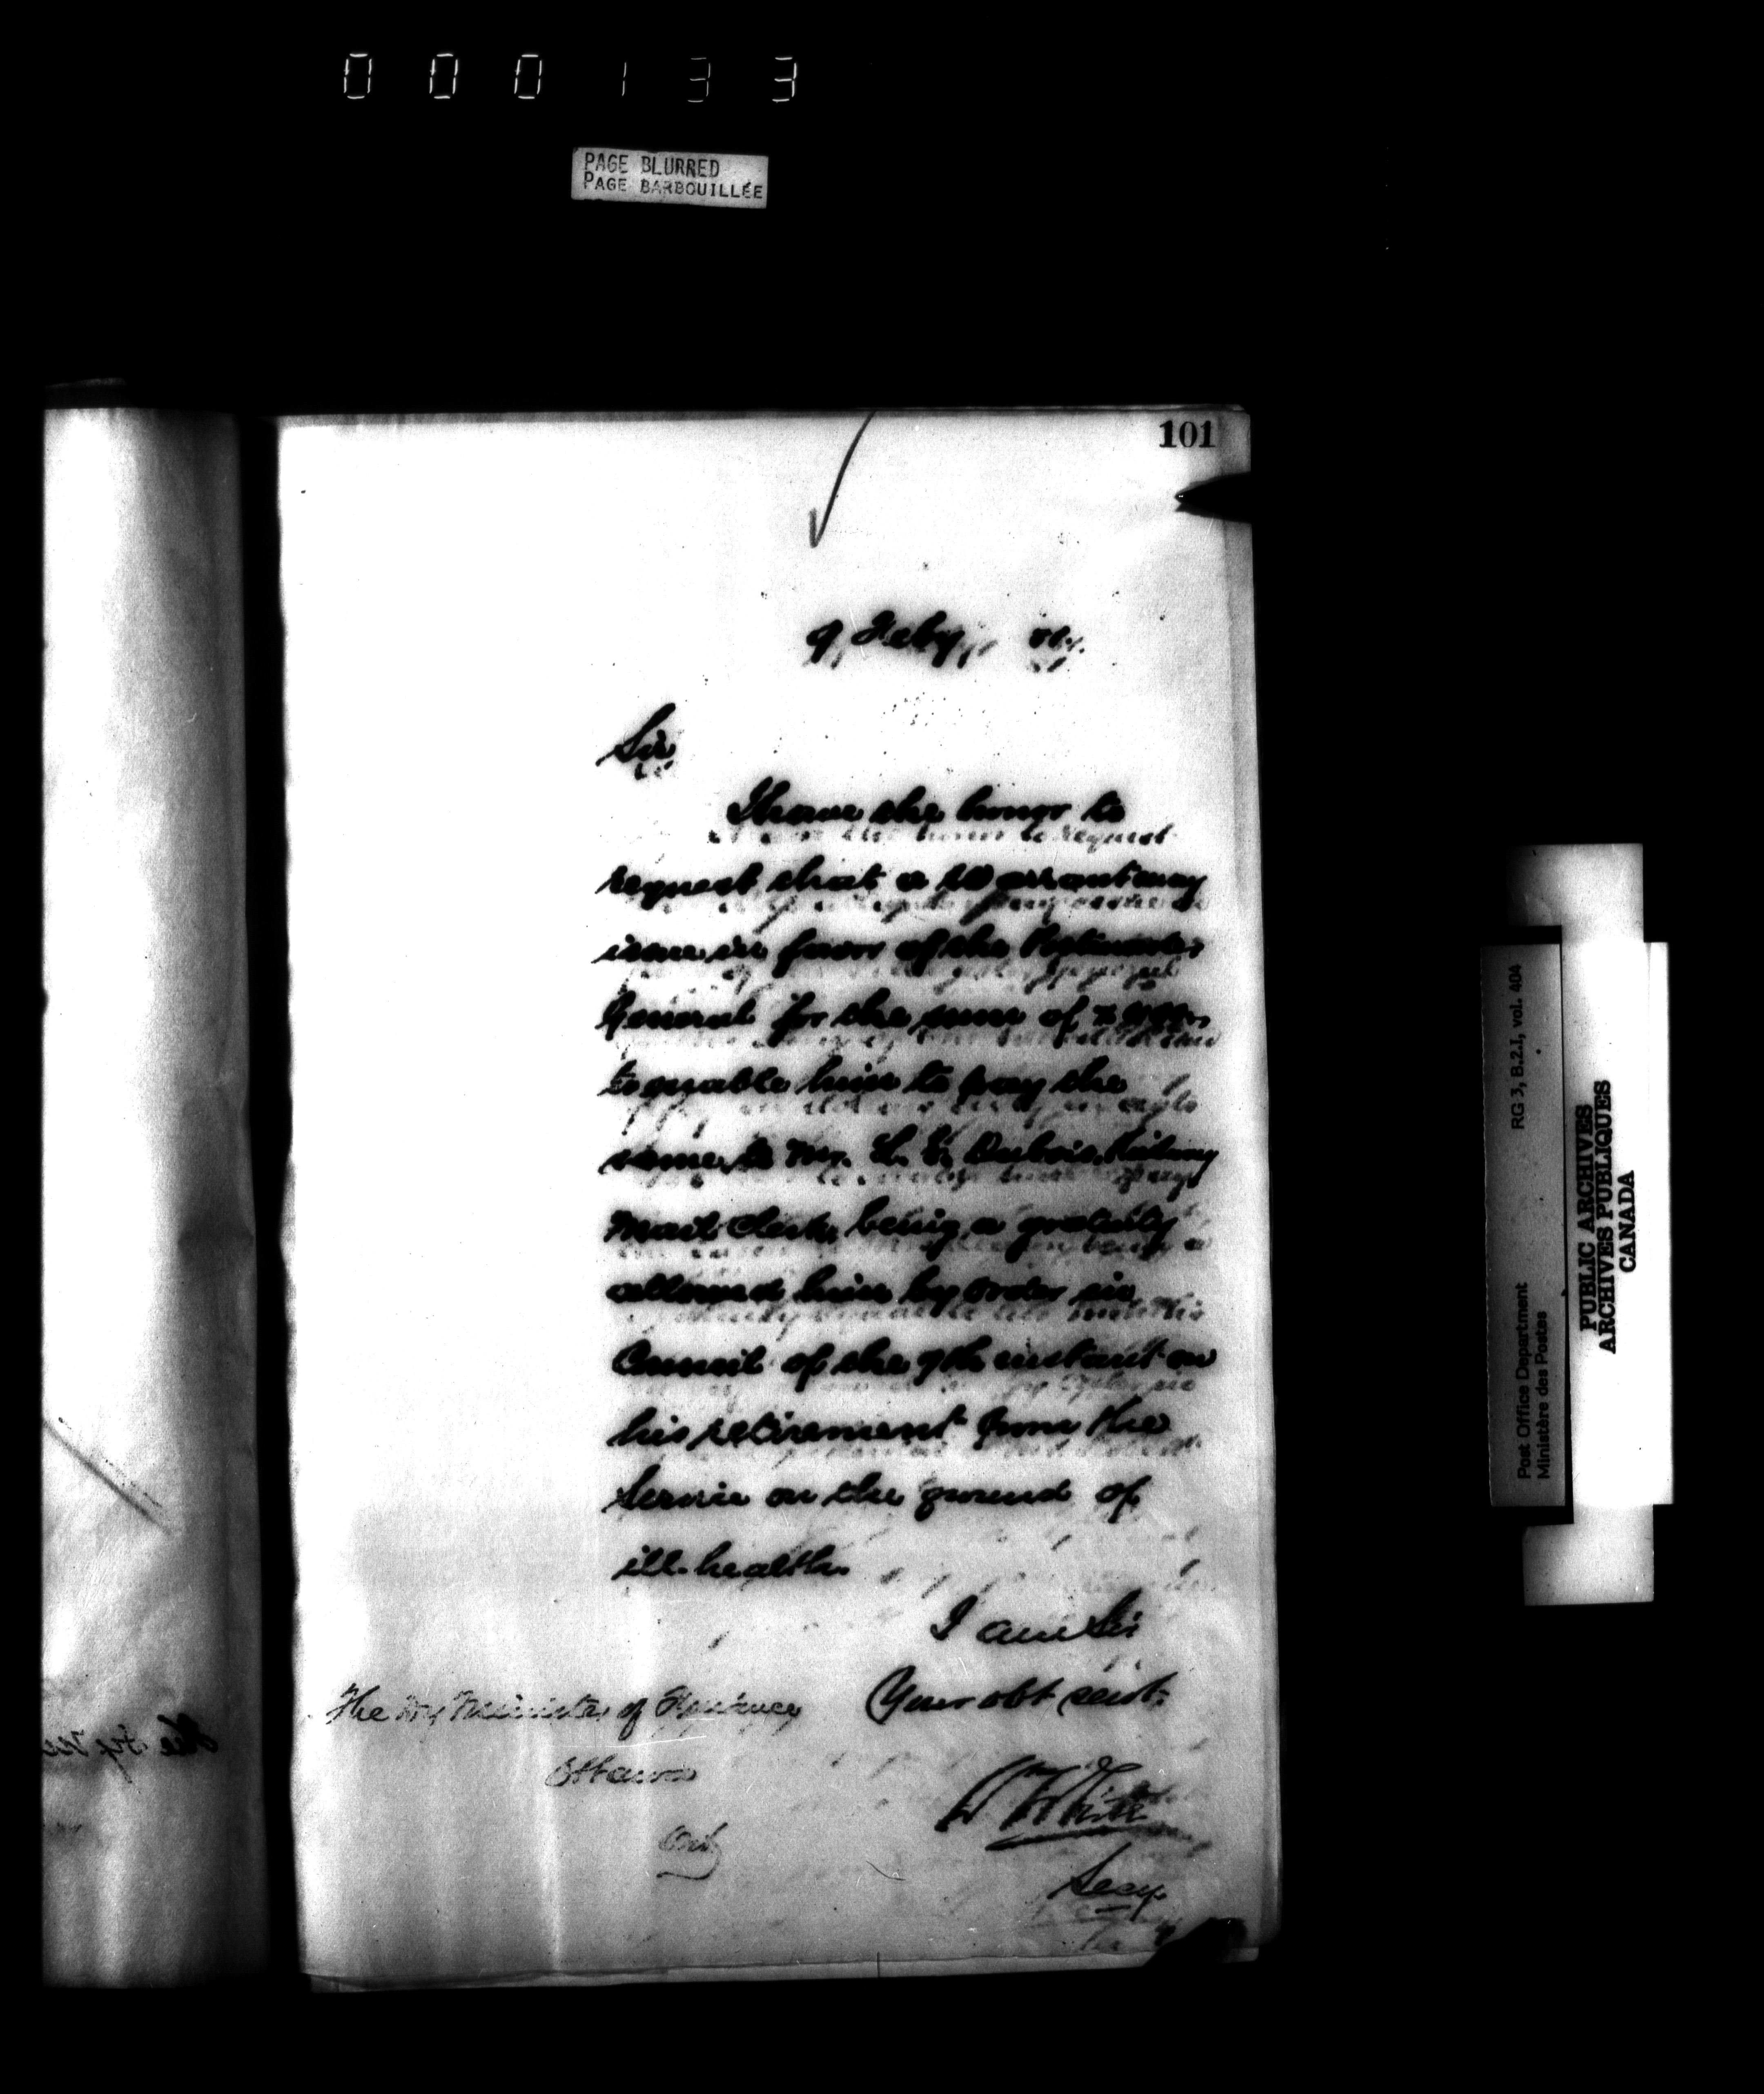 000133
PAGE BLURRED
PAGE BARBOUILLÉE
101
9, Feby,
Sir
I have the honor to
request that a Warrant may
issue in favor of the Postmaster
General for the sum of
to enable him to pay the
same to Mr. Dubois, Railway
Mail Clerk, being a gratuity
allowed him by Order in
Council of the 9th instant on
his retirement from the
Service on the ground of
ill-health.
I am Sir
Your obt servt.
The Dy Minister of Finance
Ottawa
Ont
W White
Secy.
Post Office Department
Ministère des Postes
RG 3, B.2.I, vol. 404
PUBLIC ARCHIVES
ARCHIVES PUBLIQUES
CANADA